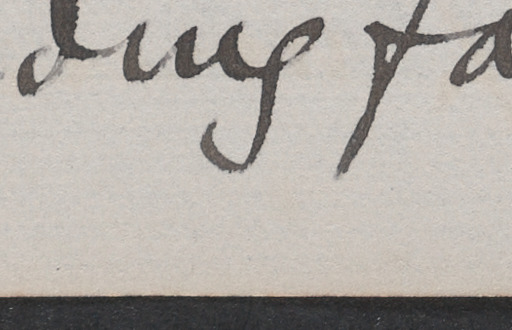 ding fa